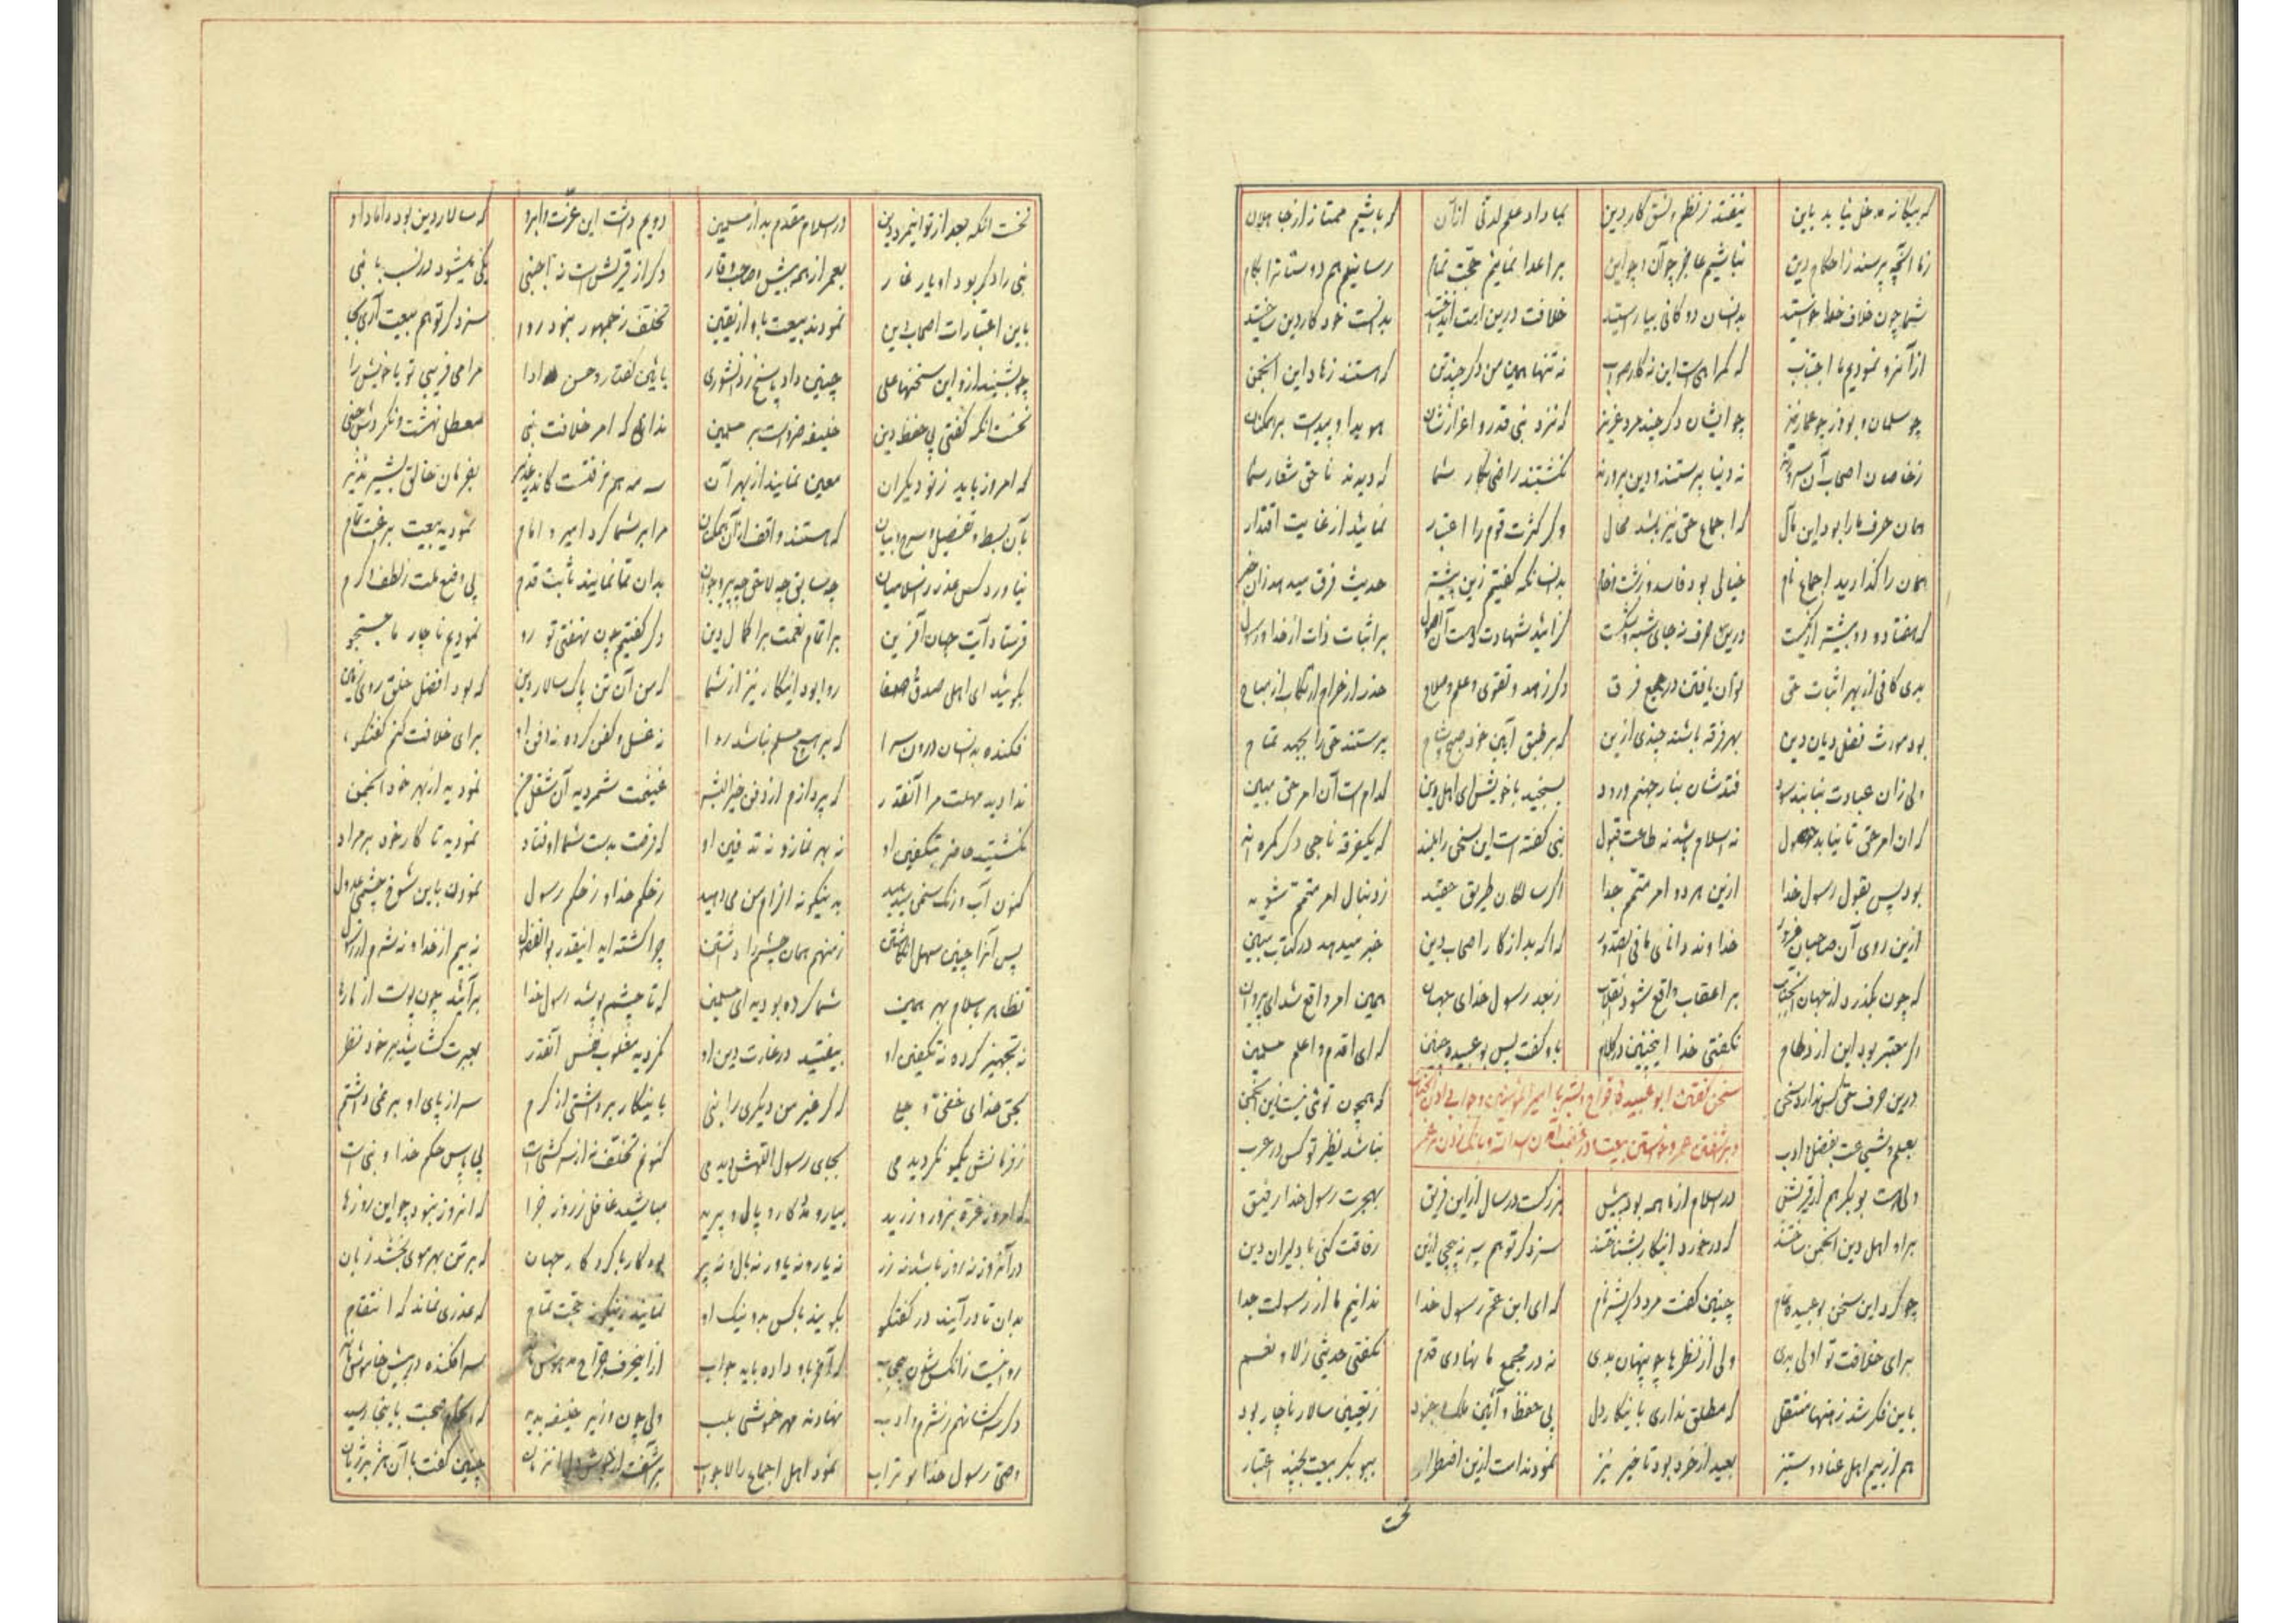 که بیگانه مدخل نیابد باین نیفتد ز نظم و نسق کار دین بما داد علم لدنی ازآن که باشیم ممتاز از جاهلان
زما آنچه پرسند ز احکام دین نباشیم عاجز چو آن و چو این بر اعدا نمائیم حجت تمام رسانیم هم دوستانرا بکام
شما چون خلاف خدا خواستید بدانسان دوکانی بیاراستید خلافت درین امت انداختید بدانست خود کار دین ساختید
از آنرو نمودیم ما اجتناب که گمراهی است این نه کار صواب نه تنها همین من دگر چند تن که هستند زهاد این انجمن
چو سلمان و بوذر چو عمار نیز چو ایشان دگر چند مرد عزیز که نزد نبی قدر و اعزازشان هویدا و پیداست بر همکنان
ز خاصان اصحاب آن سرورند نه دنیا پرستند و دین پرورند نگشتند راضی بکار شما که دیدند ناحق شعار شما
همان حرف ما را بود این مآل که اجماع حق نیز باشد محال وگر کثرت قوم را اعتبار نمائید از غایت اقتدار
همان را گذارید اجماع نام خیالی بود فاسد و زشت و خام بدانسانکه گفتیم زین پیشتر حدیث فرق میدهد زان خبر
که هفتاد و دو بیشتر از یکیست درین حرف نه جای شبهه و شکیست گرائید شهادت است آن اصول بر اثبات ذات از خدا و رسول
بدی کافی از بهر اثبات حق توان یافتن در جمیع فرق دگر زهد و تقوی و علم و صلاح حذر از حرام ارتکاب از مباح
بود مورث فضل دیان دین بهر فرقه باشند چندی ازین که بر طبق آیین خود صبح و شام پرستند حق را بجهد تمام
ولی زان عبادت نیابند سود فتدشان بنار جهنم ورود بسنجید با خویش ای اهل دین کدام است آن امر حق مبین
که آن امر حق تا نیابد حصول نه اسلام باشد نه طاعت قبول نبی گفته است این سخن را بلند که یکفرقه ناجی دگر گمره اند
بود پس بقول رسول خدا ازین هر دو امر متمم جدا اگر سالکان طریق حقید ز دنبال امر متمم شوید
ازین روی آن صاحبان غرور خداوند دانای ما فی الصدور که آگه بد از کار اصحاب دین خبر میدهد در کتاب مبین
که چون بگذرد از جهان آنجناب بر اعقاب واقع شود انقلاب ز بعد رسول خدای جهان همین امر واقع شد ای پیروان
اگر معتبر بود این ازدحام نگفتی خدا اینچنین در کلام باو گفت پس بوعبیده چنین که ای اقدم و اعلم مسلمین
درین حرف حق کس ندارد سخن که همچون توئی نیست این انجمن
سخن گفتن ابوعبیده جراح و بشر با امیر المؤمنین و جواب دادن آنجناب
بعلم و شجاعت بفضل و ادب نباشد نظیر تو کس در عرب
ولی هست بوبکر هم از قریش در اسلام از ما همه بود پیش بزرگست در سال از این فریق بهجرت رسول خدا را رفیق
بر او اهل دین انجمن ساختند که در خورد اینکار بشناختند سزد گر تو هم سر نپیچی ازین رفاقت کنی با دلیران دین
چو کرد این سخن بوعبیده تمام چنین گفت مرد دگر بشر نام که ای ابن عم رسول خدا ندانیم ما از رسولت جدا
برای خلافت تو اولی بدی ولی از نظرها چو پنهان بدی نه در مجمع ما نهادی قدم نگفتی حدیثی ز لا و نعم
باین فکر شد ز منها منتقل که مطلق نداری باینکار دل پی حفظ و آئین ملک وجود ز تعیین سالار ناچار بود
هم از بیم اهل عناد و ستیز بعید از خرد بود تاخیر نیز نمودند امت ازین اضطرار ببوبکر بیعت بچند اعتبار
نخست
نخست آنکه بعد از تو اینمرد دین در اسلام مقدم بد از مسلمین دویم داشت این عزت و آبرو که سالار دین بود داماد او
نبی را دگر بود او یار غار بعمر از همه پیش و صاحب وقار دگر از قریش است نه اجنبی یکی میشود در نسب با نبی
باین اعتبارات اصحاب دین نمودند بیعت باو از یقین تخلف ز جمهور نبود روا سزد گر تو هم بیعت آری بجا
چو بشنید از و این سخنها علی چنین داد پاسخ ز دانشوری باین گفت و حسن ادا مرا می فریبی تو یا خویش را
نخست آنکه گفتی پی حفظ دین خلیفه ضرور است بر مسلمین ندانی که امر خلافت نبی معطل نهشت و نکردش خفی
که امروز باید ز نو دیگران معین نمایند از بهر آن سه مه هم نرفتست کاندر غدیر بفرمان خالق بشیر نذیر
بآن بسط و تفضیل و شرح و بیان که هستند واقف از آن همکنان مرا بر شما کرد امیر و امام نمودید بیعت برغبت تمام
نیاورد کس عذر ز اسلامیان چه سابق چه لاحق چه پیر و جوان بدان تا نمایند ثابت قدم پی وضع ملت ز لطف و کرم
فرستاد آیت جهان آفرین بر اتمام نعمت بر اکمال دین دگر گفتیم چون نهفتی تو رو نمودیم ناچار ما جستجو
بگوئید ای اهل صدق و صفا روا بود اینکار نیز از شما که من آن تن پاک سالار دین که بود افضل خلق روی زمین
فکنده بدانسان درون سرا که بر هیچ مسلم نباشد روا نه غسل و کفن کرده نه دفن او برای خلافت کنم گفتگو
ندادید مهلت مرا آنقدر که پردازم از دفن خیر البشر غنیمت شمردید آن شغل من نمودید از بهر خود انجمن
نگشتید حاضر بتکفین او نه بهر نماز و نه تدفین او که فرصت بدست شما اوفتاد نمودید تا کار خود بر مراد
کنون آب و رنگ سخن میدهید بدینگونه الزام من می دهید ز حکم خدا و ز حکم رسول نمودن باین شوخ چشمی عدول
پس آنرا چنین سهل انگاشتن ز منهم همان چشم را داشتن چرا گشته اید اینقدر بوالفضول نه بیم از خدا و نه شرم از رسول
تظاهر باسلام بهر همین شما کرده بودید ای مسلمین که تا چشم پوشد رسول خدا برآئید چون پوست از مارها
نه تجهیز کرده نه تکفین او بیفتید در غارت دین او نگردید مغلوب نفس آنقدر بعبرت گشائید بر خود نظر
بحق خدای خفی و جلی که گر غیر من دیگری را نبی باینکار برداشتی از کرم سر از پای او بر نمی داشتم
ز فرمانش یکمو نگردیدمی بجای رسول اللهش دیدمی کنونم تخلف نه از سرکشی است پی پاس حکم خدا و نبی است
که امروز غره بزور و زرید بیار و مددکار و پال و پرید مباشید غافل ز روز جزا که آنروز نبود چو این روزها
در آنروز نه زور باشد نه زر نه یار و نه یاور نه بال و نه پر بود کار با کردگار جهان که بر تن بهر موی بخشد زبان
بدان تا درآیند در گفتگو بگویند با کس بد و نیک او نمایند زینگونه حجت تمام که عذری نماند که انتقام
روا نیست زانکس شدن بی جواب که آخر باو داده باید جواب ازین حرف جراح مدهوش شد سر افکنده در پیش خاموش شد
دگر سرکشان هم ز شرم و ادب نهادند مهر خموشی بلب ولی چون وزیر خلیفه بدید که انجام صحبت باینجا رسید
وصی رسول خدا بوتراب نمود اهل اجماع را لاجواب برآشفت از جوش دل آنزمان چنین گفت با آن هژبر ژیان